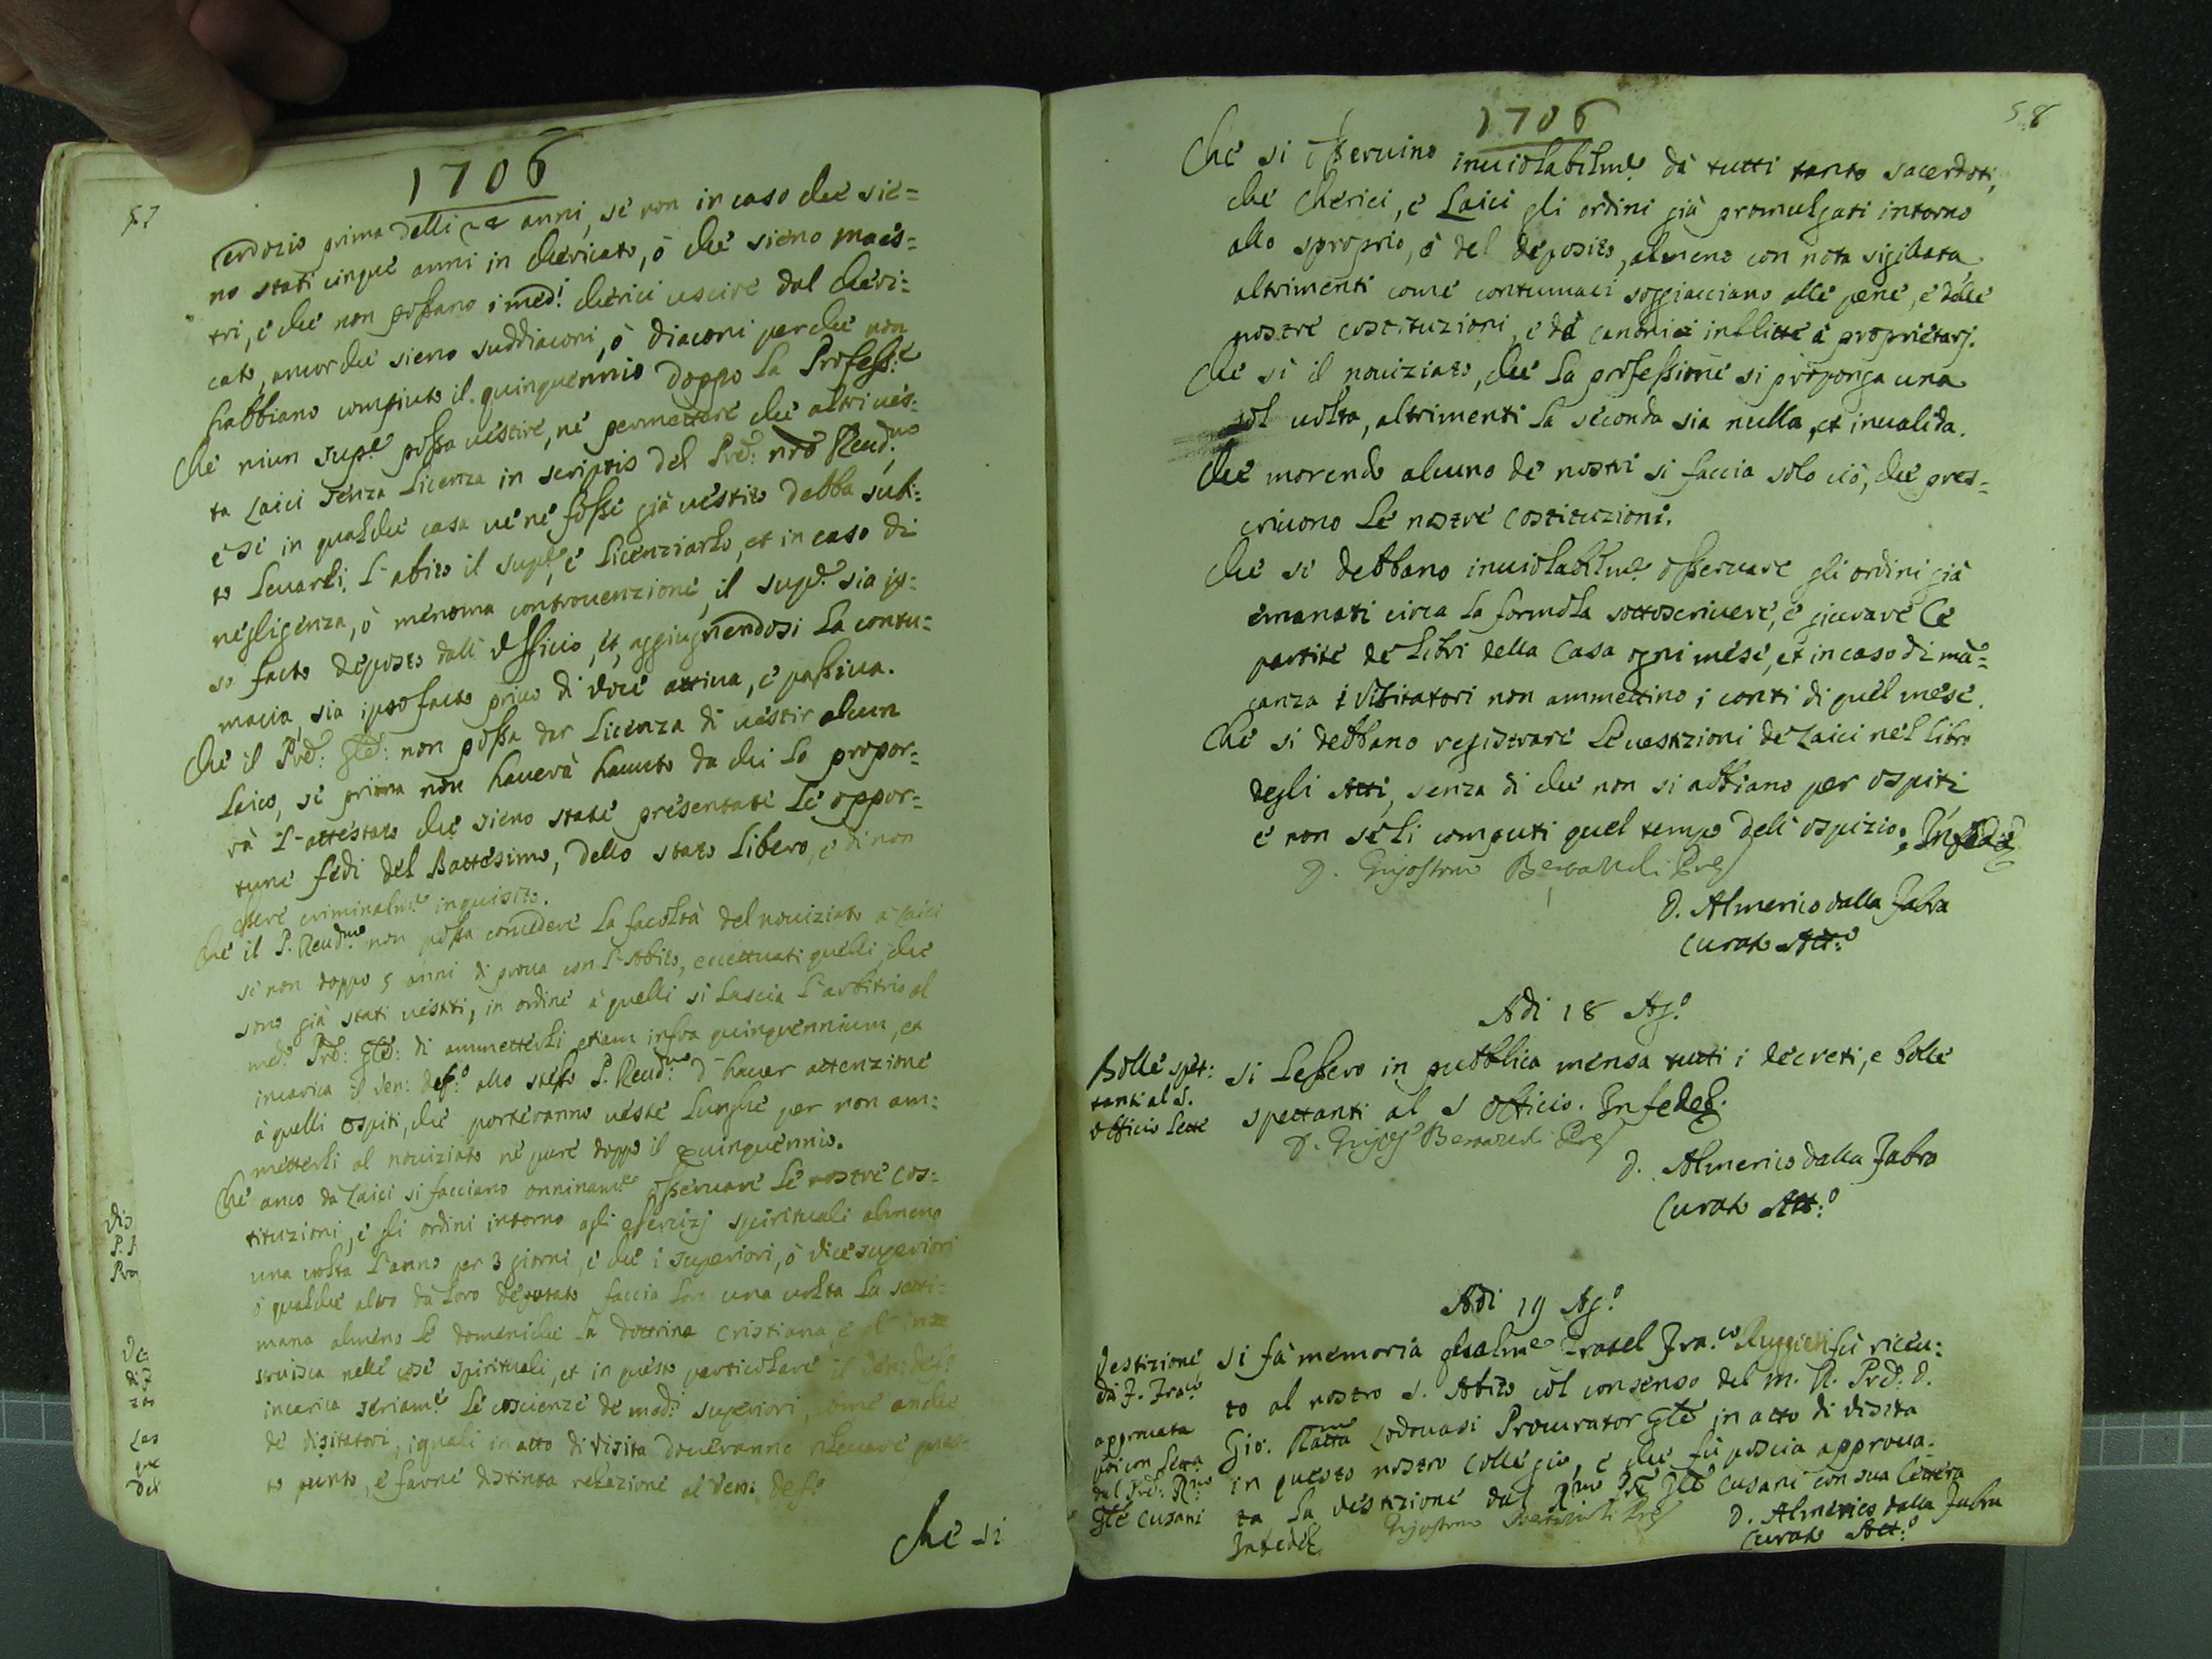 57
1706
cerdozio prima delli 24 anni, sè non in caso chè siè=
no stati cinquè anni in chericato, ò chè sieno maès=
tri, è chè non possano i med.i chèrici uscirè dal chèri=
cato, ancor chè sieno suddiaconi, ò diaconi perchè non
habbiano compiuto il quinquennio doppo la Profess.e
Chè niun sup.e possa vèstirè, nè permettèrè chè altri vès=
ta laici senza licenza in scriptis del Prè: nrõ Reud.mo
è si in qualchè casa vè nè fossè già vèstito debba subi=
to levarli l'abito il sup.e, è licenziarlo, et in caso di
nègligenza, ò mènoma controvenzionè, il sup.e sia ip=
so facto dèposto dall'officio, et, aggiugnèndosi la contu=
macia, sia ipso facto privo di vocè attiva, è passiva.
Chè il Prè: Glè: non possa dar licenza di vèstir alcun
laico, sè prima non haverà havuto da chi lo propor=
rà l'attèstato chè sieno statè prèsentatè lè oppor=
tunè fèdi dèl Battèsimo, dello stato libero, è di non
èsserè criminalm.e inquisito.
Chè il P. Reud.mo non possa concèderè la facoltà del noviziato à laici
sè non doppo 5 anni di prova con l'Abito, eccettuati quèlli, chè
sono già stati vèstiti, in ordinè à quelli si lascia l'arbitrio al
med.o Prè: Glè: di ammetterli etiam infra quinquennium, et
incarica il Ven: Def.o allo stèsso P. Reud.mo d'haver attenzionè
à quelli ospiti, chè portèranno vèstè lunghè per non am=
mètterli al noviziato nè purè doppo il quinquènnio.
Chè anco da laici si facciano onninam.e osservarè lè nostrè cos=
tituzioni, è gli ordini intorno agli esercizj spirituali almeno
una volta l'anno per 3 giorni, è chè i superiori, ò vicè superiori
ò qualchè altro dà loro dèputato faccia loro una volta la setti=
mana almèno lè domenichè la dottrina cristiana, è gl'in=
struisca nellè cosè spirituali, et in questo particolarè il Ven: def.o
incarica seriam.e lè coscienzè dè med.i superiori, comè anchè
dè visitatori, i quali in atto di visita dovèranno rilevarè ques=
to punto, è farnè distinta relazionè al Ven: def.o
chè si
58
1706
Chè si osservino inviolabilm.e dà tutti tanto sacerdoti,
chè chèrici, è laici gli ordini già promulgati intorno
allo sproprio, ò del dèposito, almeno con nota sigillata
altrimenti comè contumaci soggiacciano allè penè, è dèllè
nostrè costituzioni, è dà canonici inflittè à propriètarj.
Chè sì il noviziato, chè la professionè si proponga una
sol volta, altrimenti la sèconda sia nulla, et invalida.
Chè morendo alcuno dè nostri si faccia solo ciò, chè pres=
crivono lè nostrè costituzioni.
Chè si debbano inviolabilm.e osservarè gli ordini già
èmanati circa la formola sottoscriverè, è giurarè lè
partitè dè libri della Casa ogni mèsè, èt in caso di mã=
canza i Visitatori non ammettino i conti di quèl mèsè.
Chè si debbano registrarè lè vestizioni dè laici nèl libro
degli Atti, senza di chè non si abbiano per ospiti
è non sè li computi quel tempo dell'ospizio; In fedè
D. Grisostomo Bervaldi Prè
D. Almerico dalla Fabra
Curato Att.o
Adi 18 Ag.o
Bollè spèt:
tanti al S.
Officio lettè
Si lessero in pubblica mensa tutti i dècreti, e bollè
spettanti al S Officio. In fedè
D. Grisos.o Bervaldi Prè
D. Almerico dalla Fabra
Curato Att.o
Adi 19 Ag.o
Vestizionè
di F. Fra.co
approvata
poi con lettera
dal Prè: R.mo
Glè Cusani
Si fà memoria qualm.e Fratel Fra.co Ruggieri fù ricèu:
to al nostro S. Abito col consenso del m. R. Prè: D.
Gio: Lodovasi Procurator Glè in atto di visita
in questo nostro Collègio, è chè fù poscia approva=
ta la vèstizionè dal R.mo Prè Glè Cusani con sua lettera
In fedè
Grisostomo Bervaldi Prè
D. Almerico dalla Fabra
Curato Att.o